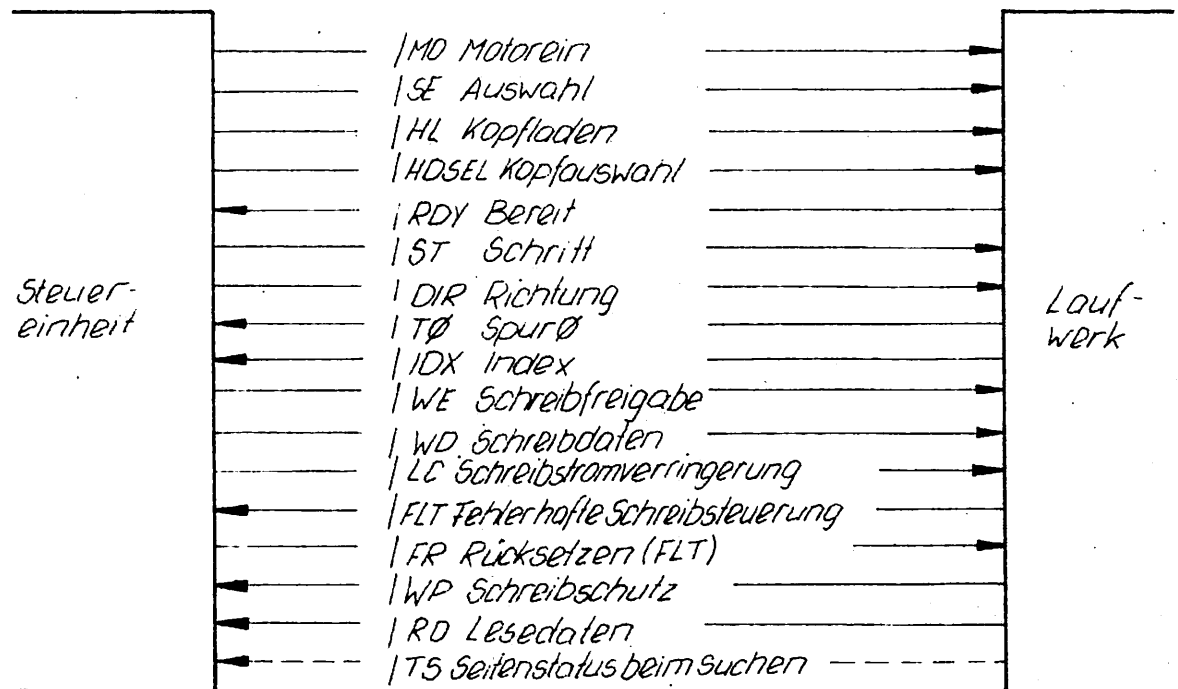 /MO Motorein
/SE Auswahl
/HL Kopfladen
/HDSEL Kopfauswahl
/RDY Bereit
/ST Schritt
/DIR Richtung
/TØ SpurØ
/IDX Index
/WE Schreibfreigabe
/WD Schreibdaten
/LC Schreibstromverringerung
/FLT Fehlerhafte Schreibsteuerung
/FR Rücksetzen (FLT)
/WP Schreibschutz
/RD Lesedaten
/TS Seitenstatus beim Suchen
Steuer-
einheit
Lauf-
werk